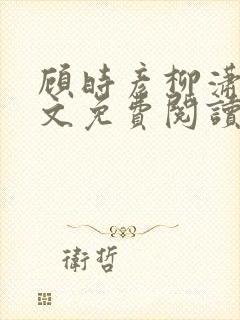 顾時彦柳潇
文免費閱讀
衛哲